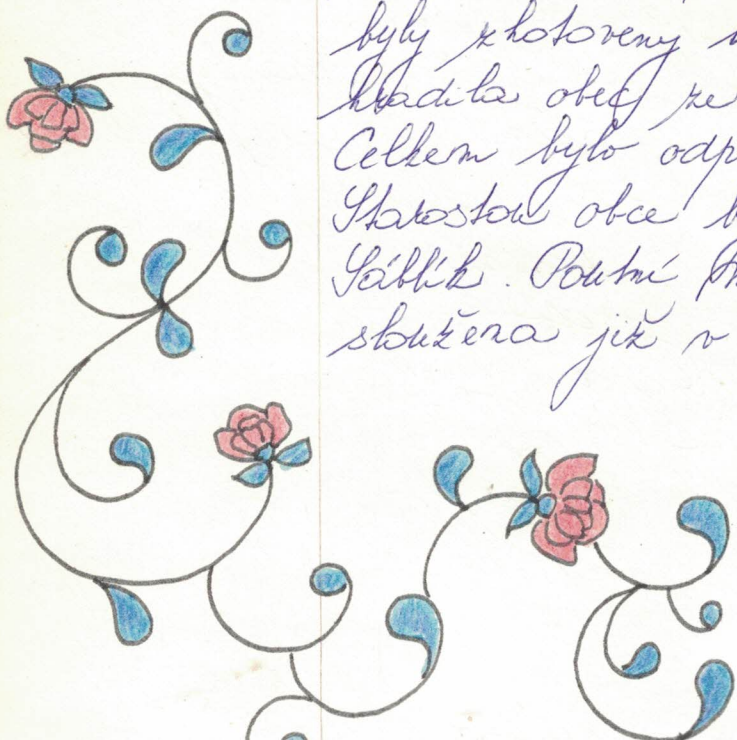 byly zhotoveny
hradila obec ze
Celkem bylo odp
Starostou obce b
Sáblík. Poutní
sloužena již v